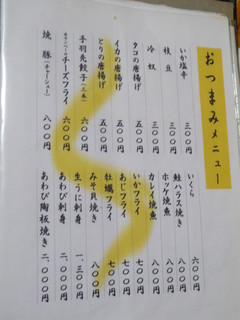 おつまみメニュー
いか塩辛 三〇〇円
枝豆 三〇〇円
冷奴 三〇〇円
タコの唐揚げ 五〇〇円
イカの唐揚げ 五〇〇円
とりの唐揚げ 五〇〇円
手羽先餃子(三本) 六〇〇円
カマンベールのチーズフライ 六〇〇円
焼豚(チャーシュー) 八〇〇円
いくら 六〇〇円
鮭ハラス焼き 八〇〇円
ホッケ焼魚 八〇〇円
カレイ焼魚 八〇〇円
いかフライ 七〇〇円
あじフライ 七〇〇円
牡蠣フライ 七〇〇円
みそ貝焼き 八〇〇円
生うに刺身 一、三〇〇円
あわび刺身 二、〇〇〇円
あわび陶板焼き 二、〇〇〇円